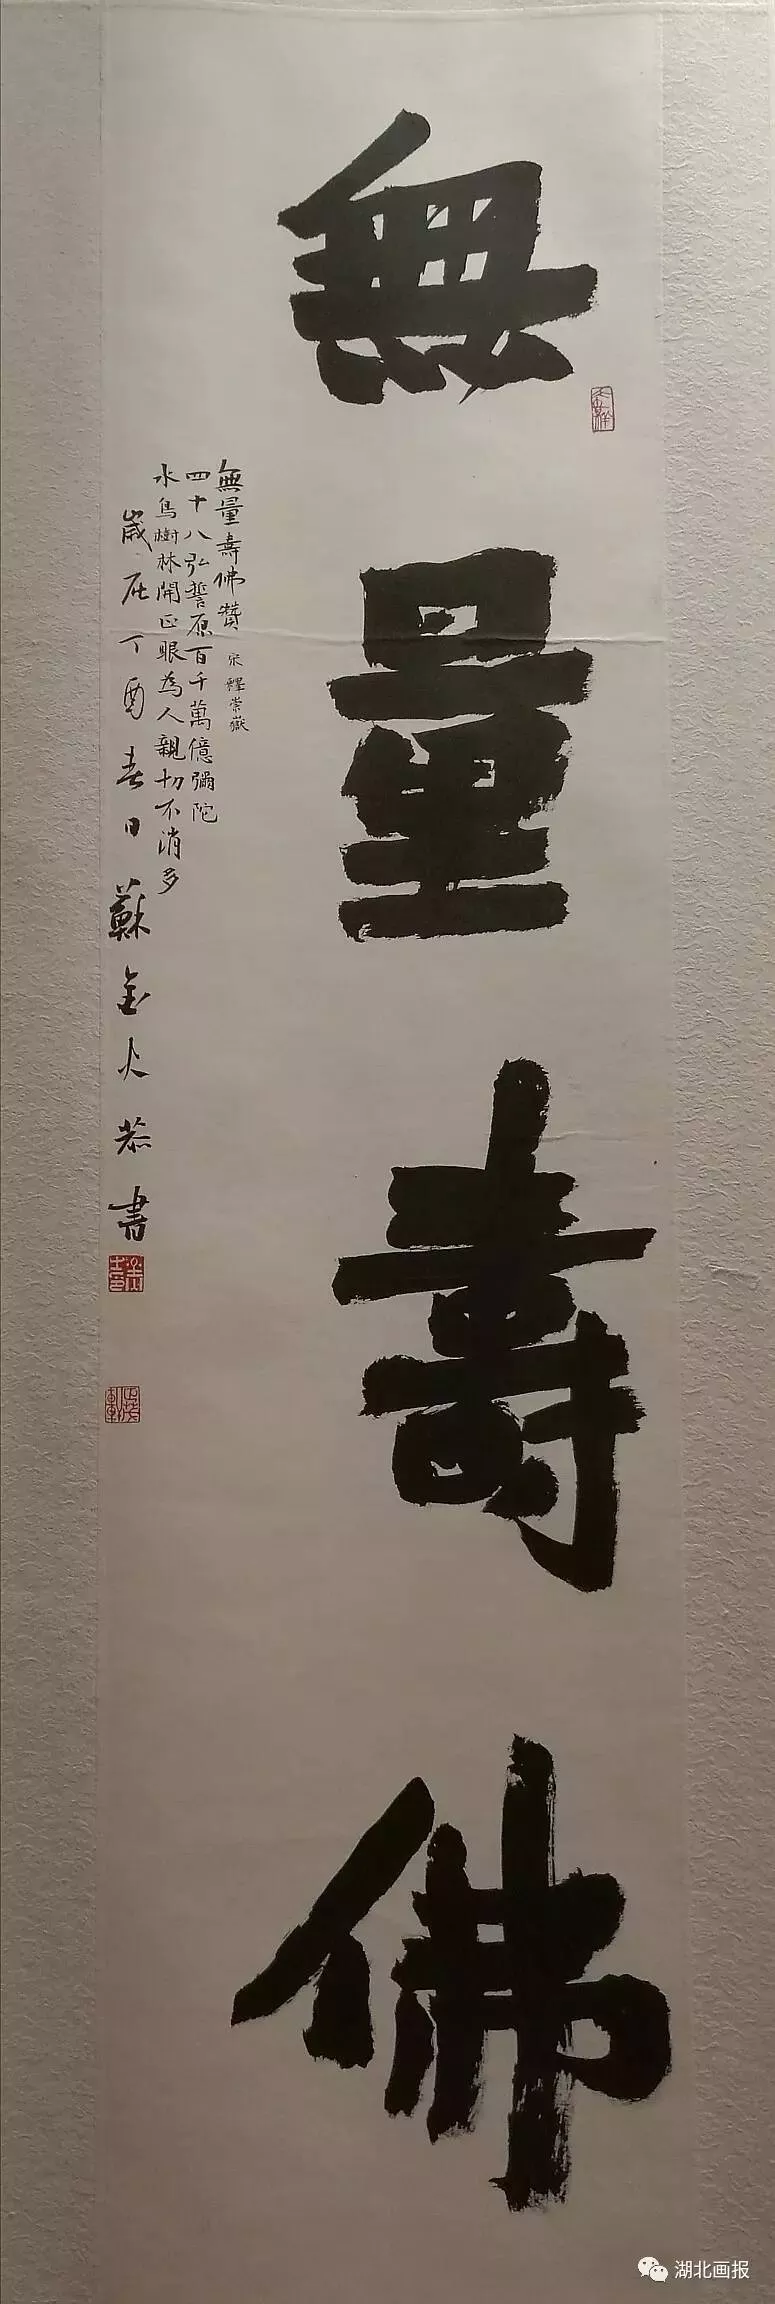 無量壽佛
無量壽佛贊 宋 釋崇嶽
四十八弘誓原百千萬億彌陀
水鳥樹林開正眼為人親切不消多
歲在丁酉春日蘇金火恭書
湖北画报